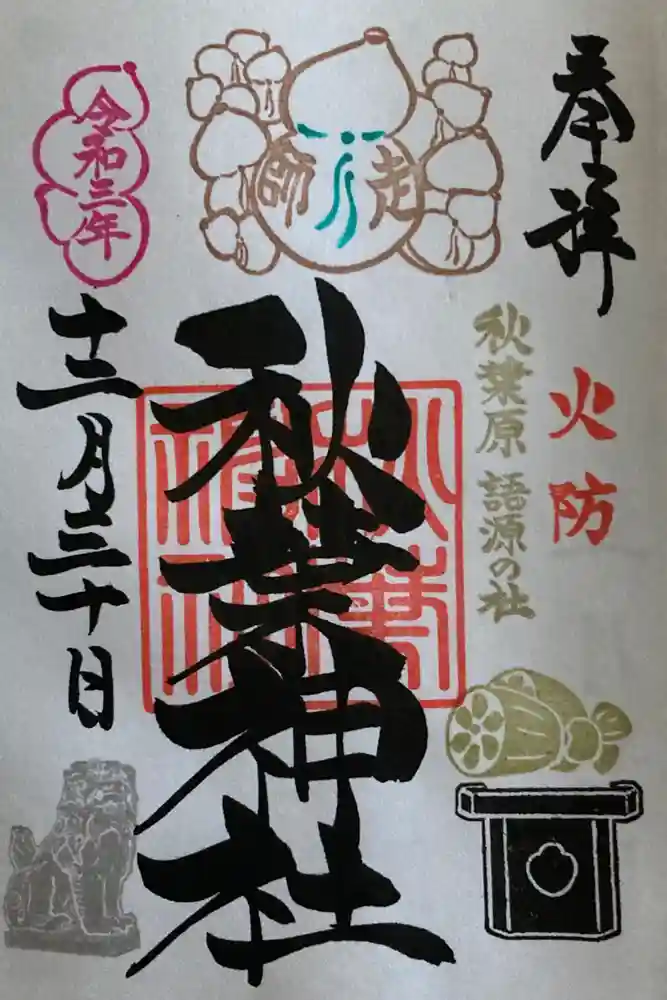 奉拝
火防
秋葉原 語源の社
師走
秋葉神社
令和三年
十二月三十日